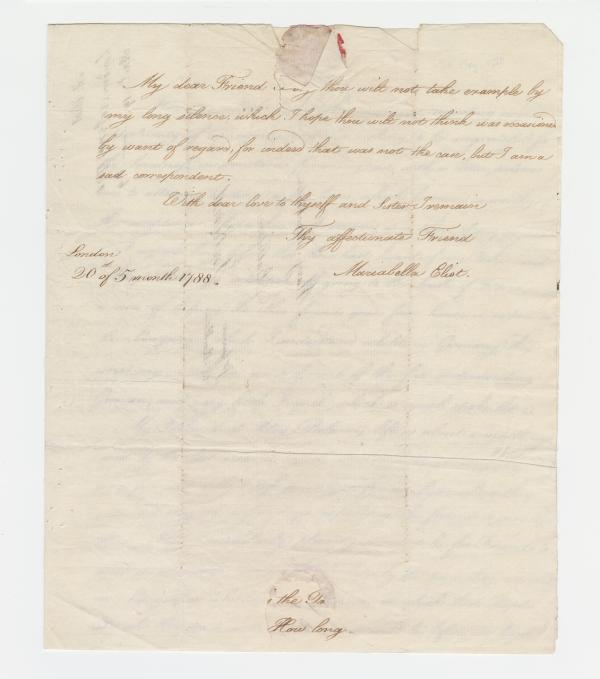 My dear Friend thou wilt not take example by
my long silence, which I hope thou wilt not think was occasioned
by want of regard, for indeed that was not the case, but I am a
sad correspondent.
With dear love to thyself and Sister I remain
Thy affectionate Friend
Mariabella Eliot.
London
20 of 5 month 1788.
the To
How long